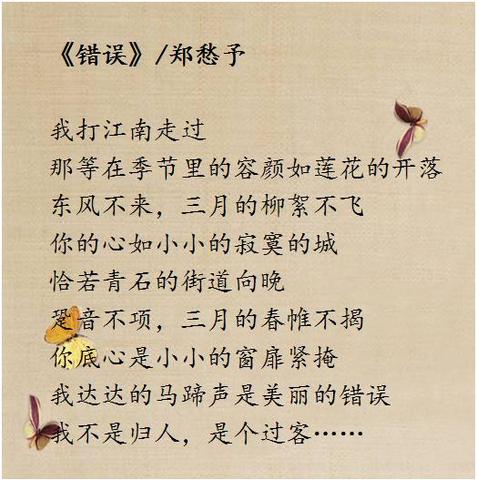 《错误》/郑愁予
我打江南走过
那等在季节里的容颜如莲花的开落
东风不来，三月的柳絮不飞
你的心如小小的寂寞的城
恰若青石的街道向晚
跫音不项，三月的春帷不揭
你底心是小小的窗扉紧掩
我达达的马蹄声是美丽的错误
我不是归人，是个过客……